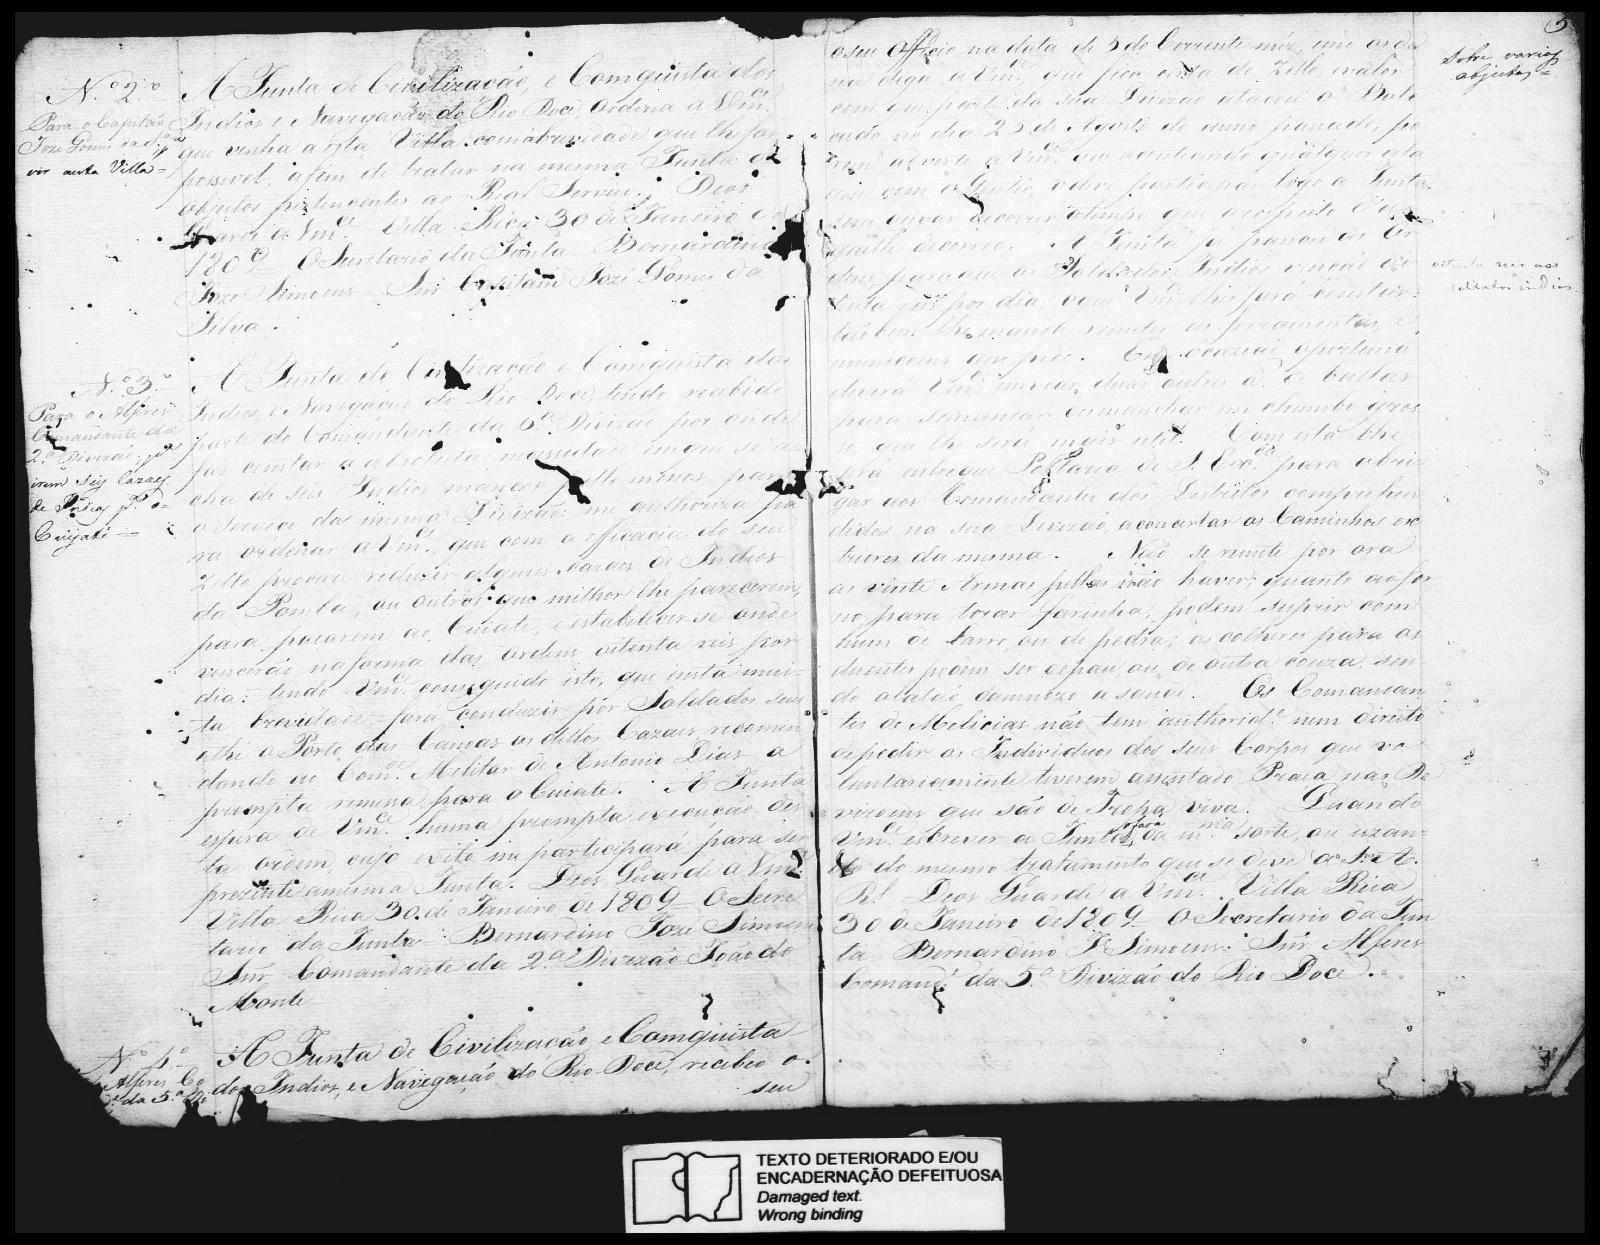 N.º 2.º
Para o Capitão
Joze Gomes da S.ª p.ª
vir a esta Villa =
A Junta de Civilização, e Comquista dos
Indios e Navegação do Rio Doce, ordena a Vm.ce
que venha a esta Villa com a brevidade que lhe for
possivel, afim de tratar na mesma Junta de
objetos pertencentes ao Real Serviço. Deos
Guarde a Vm.ce Villa Rica 30 de Janeiro de
1809 O Secretario da Junta Bernardino
Joze Simoens Snr. Capitam Joze Gomes da
Silva.
N.º 3.º
Para o Alferes
Comandante da
2.ª Divizão, p.ª
irem seis Cazaes
de Indios p.ª o
Cuyaté =
A Junta de Civilização e Comquista dos
Indios, e Navegação do Rio Doce, tendo recebido
parte do Comandante da 6.ª Divizão por onde
faz constar a absoluta necessidade em que se a
cha de seis Indios mansos pello menos para
o Serviço da mesma Divizão: me authoriza pa
ra ordenar a Vm.ce, que com a efficacia do seu
Zello procure reduzir alguns cazaes de Indios
da Pomba, ou outros que milhor lhe parecerem,
para passarem ao Cuiate, e estabelecer-se onde
vencerão na forma das ordens oitenta reis por
dia: tendo Vm.ce conseguido isto, que insta mui-
ta brevidade, fará conduzir por Soldados seus
athe o Porto das Canoas os dittos Cazaes, recomen
dando ao Com.de Militar de Antonio Dias a
prompta remessa para o Cuiate. A Junta
espera de Vm.ce huma prompta execução des
ta ordem, cujo exito me participará para ser
prezente a mesma Junta. Deos Guarde a Vm.ce
Villa Rica 30 de Janeiro de 1809 O Secre
tario da Junta Bernardino Joze Simoens
Snr. Comandante da 2.ª Divizão João do
Monte
N.º 4.º
Alferes Co
da 5.ª Di
A Junta de Civilização e Comquista
dos Indios, e Navegação do Rio Doce, recebeo o
seu
5
Sobre varios
objectos =
o seu Officio na data de 5 do Corrente mez, e me orde
na diga a Vm.ce que fica certa do Zello e valor
com que parte da sua Divizão atacou o Boto
cudo no dia 25 de Agosto do anno passado, po
rem adverte a Vm.ce que acontecendo qualquer ata
que com o Gentio, o deve participar logo a Junta,
sem deixar decorrer o tempo, que a respeito d'a
quelle decorreo. A Junta ja passou as Or
dens, para que os Soldados Indios vencão oi
tenta reis por dia, o que Vm.ce lhes fará constar:
tambem lhe manda remeter as ferramentas, e
municoens que pede. Em ocazião oportuna
devera Vm.ce enviar duas outras @ de ballas
para se mandar desmanchar em chumbo gros
so que lhe será mais util. Com esta lhe
será entregue Portaria de S. Ex.cia para obri
gar aos Comandantes dos Destritos comprehen
didos na sua Divizão, a concertar os Caminhos ex
teriores da mesma. Não se remete por ora
as vinte Armas pellas não haver; quanto ao for
no para torar farinha, podem suprir com
hum de barro, ou de pedra; as colheres para os
duentes podem ser de pau, ou de outra couza, sen
do o latão damnozo a saude. Os Comandan
tes de Melicias não tem authorid.e nem direito
de pedir os Individuos dos seus Corpos que vo
luntariamente tiverem assentado Praça nas De
vizoens que são de Tropa viva. Quando
Vm.ce escrever a Junta, o fara da m.ma sorte, ou uzan
do do mesmo tratamento que se deve a S. A.
R.l Deos Guarde a Vm.ce Villa Rica
30 de Janeiro de 1809 O Secretario da Jun
ta Bernardino J.e Simoens. Snr. Alferes
Comand.e da 5.ª Divizão do Rio Doce.
oitenta reis aos
solldados indios
TEXTO DETERIORADO E/OU
ENCADERNAÇÃO DEFEITUOSA
Damaged text.
Wrong binding